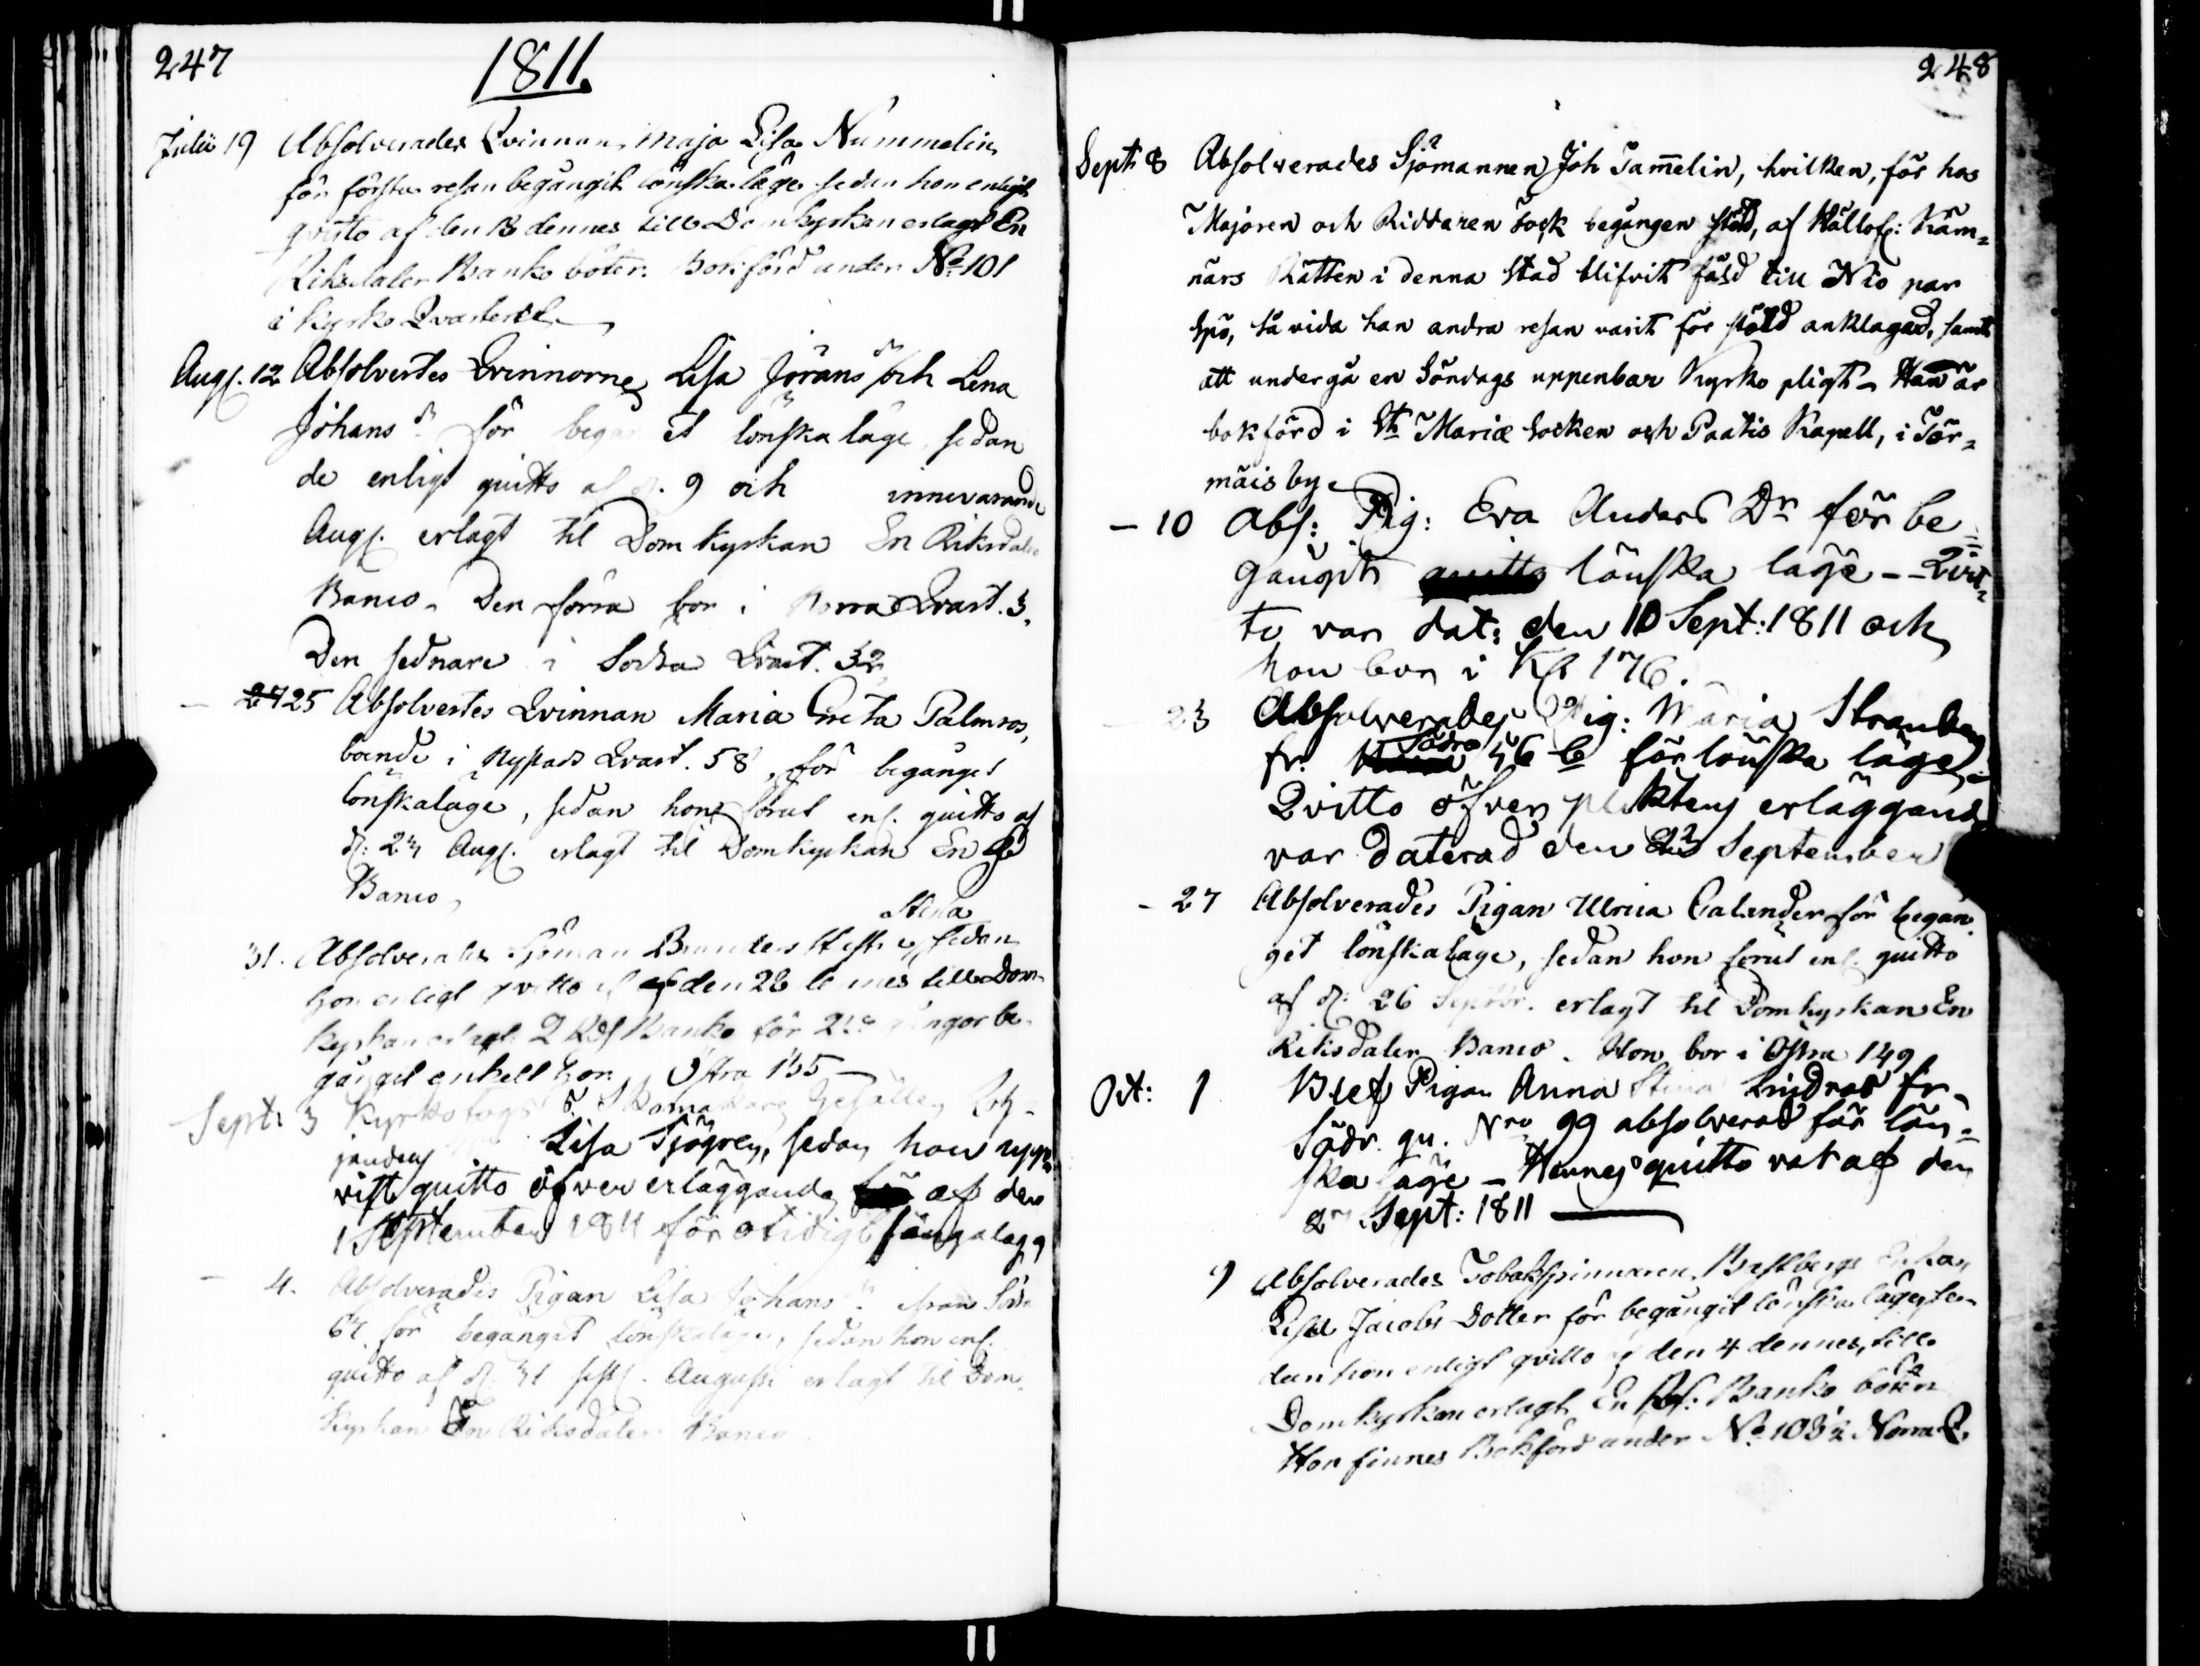 247
1811.
Julii 19 Absolverades Qvinnan Maja Lisa Nummelin
för första resan begångit lönskaläge sedan hon enligt
qvitto af den 18 dennes till Domkyrkan erlagt En
Riksdaler Banko böter. Bokförd under No 101
i Kyrko Qvarteret
Aug. 12 Absolvertes Qvinnorne Lisa Jörans dr och Lena
Johans dr för begånget lönskaläge sedan
de enligt quitto af d. 9 och innevarande
Aug. erlagt til Domkyrkan En Riksdaler
Banco. Den förra bor i Norra Qvart. 3.
Den sednare i Södra Qvart. 32
— 25 Absolvertes Qvinnan Maria Greta Palmros,
boende i Nystads Qvart. 58, för begånget
lönskaläge, sedan hon förut enl. quitto af
d: 24 Aug. erlagt til Domkyrkan En Rd
Banco.
Stina
31. Absolverades Sjöman Brunders Hustru sedan
hon enligt qvitto af den 28 dennes till Dom-
kyrkan erlagt 2 Rds Banko för 2ne gångor be-
gånget enkelt hor. Östra 155 —
Sept: 3 Kyrkotogs Skomakare Gesällen
Lisa Sjögren, sedan hon upp-
vist quitto öfver erläggande af den
1 September 1811 för otidigt sängalag
— 4. Absolverades Pigan Lisa Johans dr från Södra
67 för begånget lönskaläge, sedan hon enl.
quitto af d. 31 sistl. Augusti erlagt til Dom-
kyrkan En Riksdaler Banco.
248
Sept: 8 Absolverades Sjömannen Joh Tam̅elin, hvilken, för hos
Majoren och Riddaren Tock begången stöld, af Vällofl: Käm-
närs Rätten i denna Stad blifvit fäld till Nio par
Spö, så vida han andra resan varit för stöld anklagad, samt
att undergå en Söndags uppenbar Kyrko pligt — Han är
bokförd i St Mariæ Socken och Paatis Kapell, i Tör-
mäis by
— 10 Abs: Pig: Eva Anders Dr för be-
gångit lönska läge — Qvit-
to var dat: den 10 Sept: 1811 och
hon bor i Kl 176.
— 23 Absolverades Pig: Maria Stranberg
fr. Södra 56 b för lönska läge
Qvitto öfver pliktens erläggande
var daterad den 22 September
— 27 Absolverades Pigan Ulrica Calander för begån-
get lönskaläge, sedan hon förut enl. quitto
af d: 26 Septbr. erlagt til Domkyrkan En
Riksdaler Banco. Hon bor i Östra 149
Oct: 1 Blef Pigan Anna Stina Lindros fr.
Södr. qu. Nro 99 absolverad för lön-
ska läge — Hennes quitto var af den
27 Sept: 1811 —
9 Absolverades Tobakspinnaren Bastbergs Enka
Lisa Jacobs Dotter för begångit lönska läge, se-
dan hon enligt qvitto af den 4 dennes, till
Domkyrkan erlagt En Rd: Banko böter
Hon finnes Bokförd under No 103½ Norra Q.